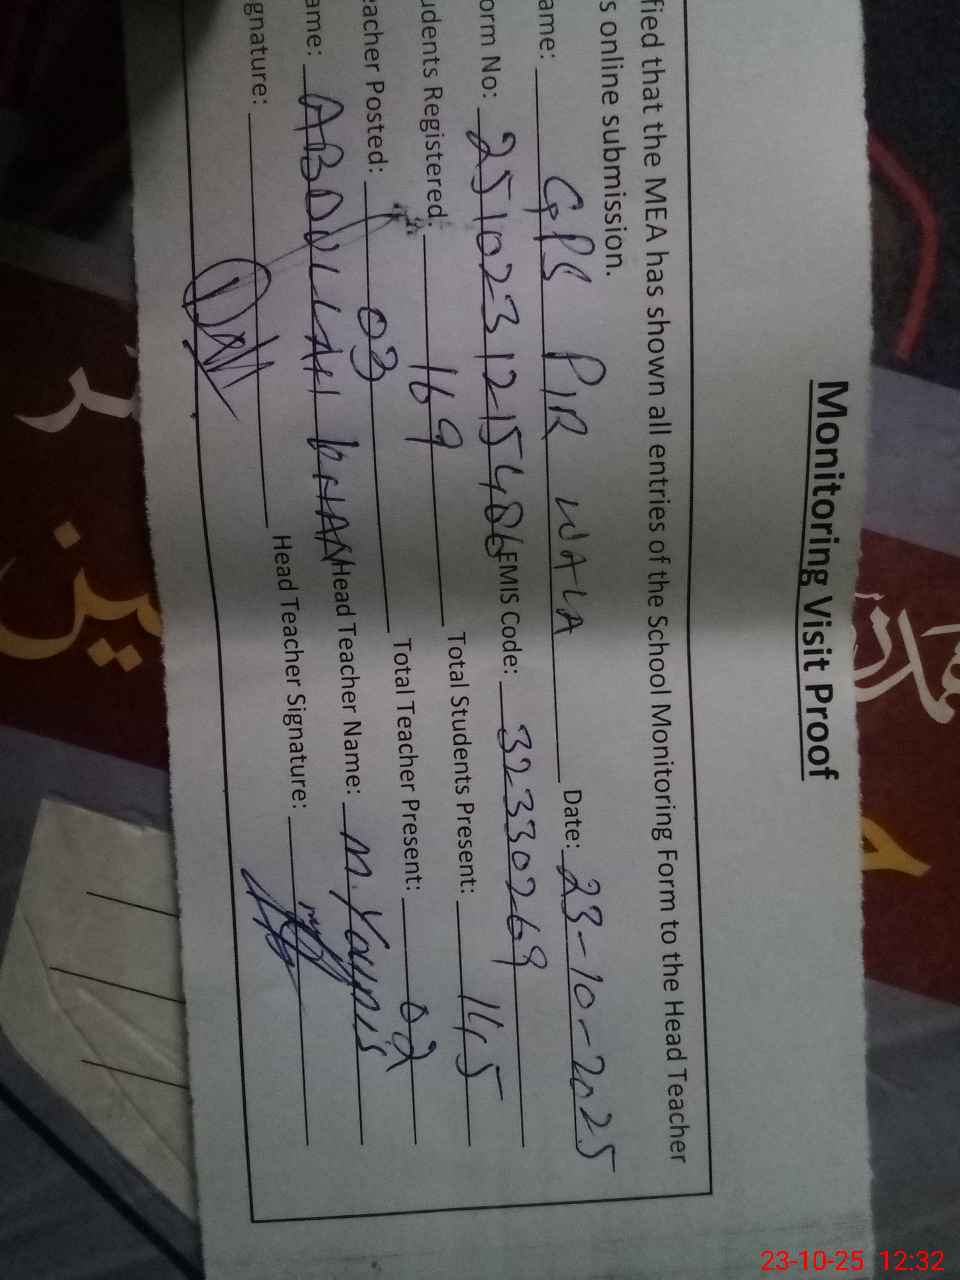 Monitoring Visit Proof
fied that the MEA has shown all entries of the School Monitoring Form to the Head Teacher
s online submission.
ame: GPS PIR WALA Date: 23-10-2025
orm No: 2510231215486 EMIS Code: 32330269
udents Registered: 169 Total Students Present: 115
eacher Posted: 03 Total Teacher Present: 02
ame: ABDULLAH KHAN Head Teacher Name: M. Younis
gnature: Head Teacher Signature:
23-10-25 12:32